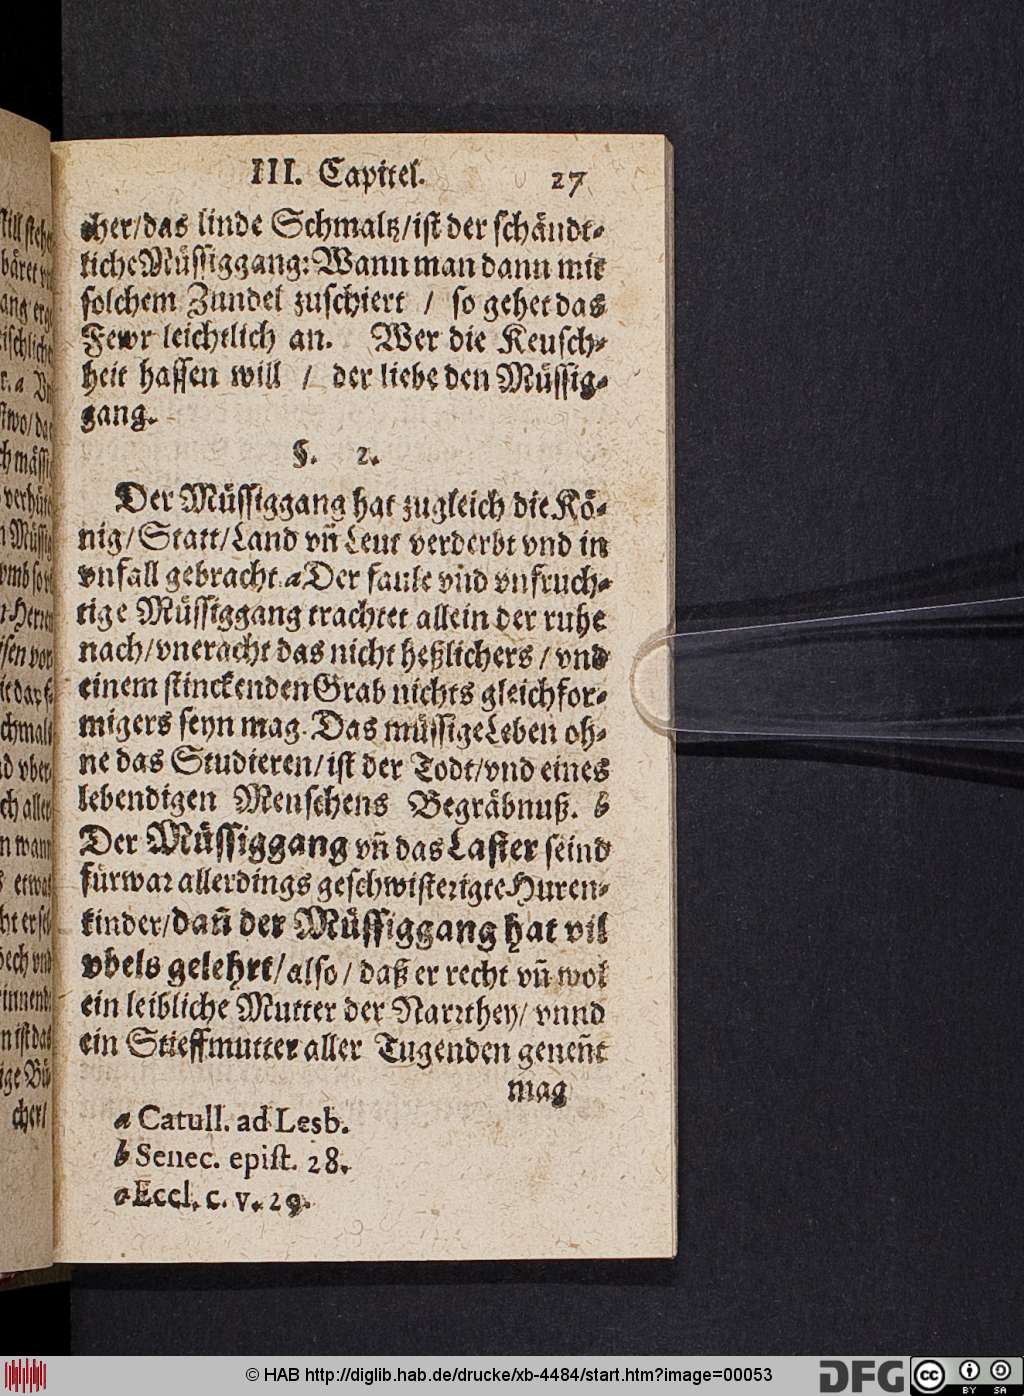 III. Capitel. 27
cher/das linde Schmaltz/ist der schändt-
liche Müssiggang: Wann man dann mit
solchem Zundel zuschiert / so gehet das
Fewr leichtlich an. Wer die Keusch-
heit hassen will / der liebe den Müssig-
gang.
§. 2.
Der Müssiggang hat zugleich die Kö-
nig/Statt/Land vñ Leut verderbt vnd in
vnfall gebracht. a Der faule vnd vnfruch-
tige Müssiggang trachtet allein der ruhe
nach/vneracht das nicht heßlichers / vnd
einem stinckenden Grab nichts gleichfor-
migers seyn mag. Das müssige Leben oh-
ne das Studieren/ist der Todt/vnd eines
lebendigen Menschens Begräbnuß. b
Der Müssiggang vñ das Laster seind
fürwar allerdings geschwisterigte Huren-
kinder/dañ der Müssiggang hat vil
vbels gelehrt/also/daß er recht vñ wol
ein leibliche Mutter der Narrthey/ vnnd
ein Stieffmutter aller Tugenden geneñt
mag
a Catull. ad Lesb.
b Senec. epist. 28.
a Eccl. c. v. 29.
still stehe
cher/
© HAB http://diglib.hab.de/drucke/xb-4484/start.htm?image=00053
DFG
cc BY SA